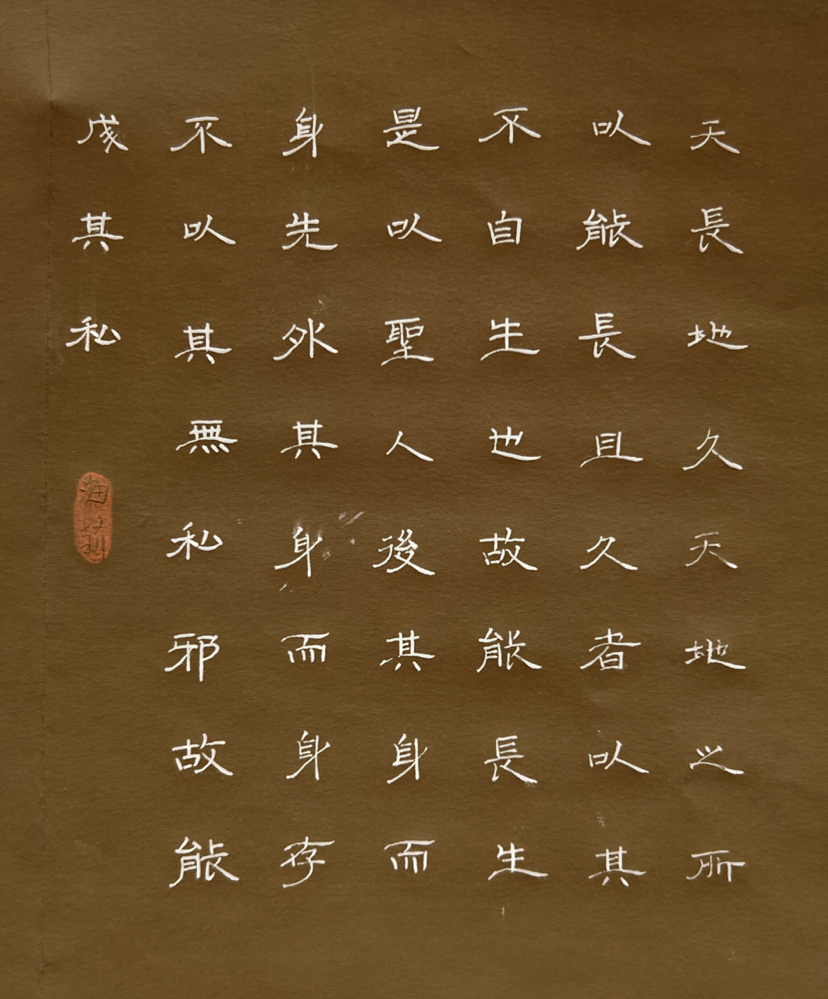 天長地久天地之所
以能長且久者以其
不自生也故能長生
是以聖人後其身而
身先外其身而身存
不以其無私邪故能
成其私